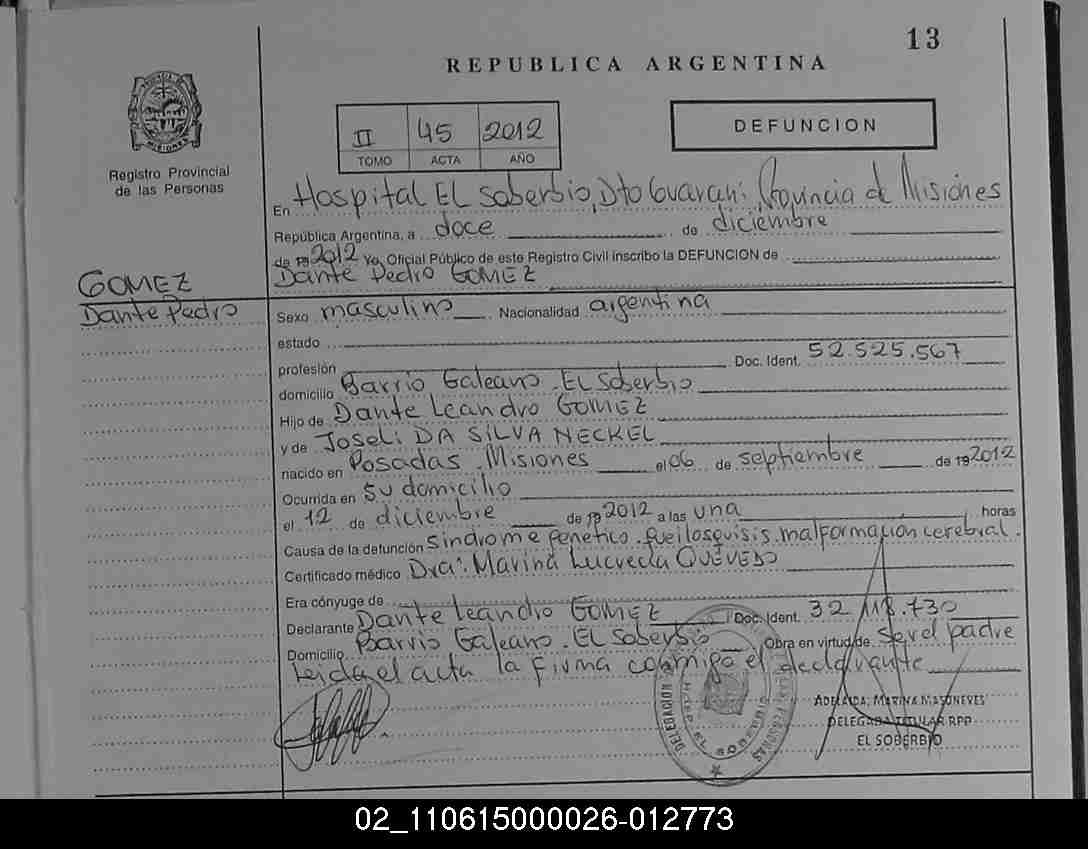 13
REPUBLICA ARGENTINA
II 45 2012
TOMO ACTA AÑO
DEFUNCION
Registro Provincial
de las Personas
En Hospital EL Soberbio, Dto Guaraní Provincia de Misiones
República Argentina, a doce de diciembre
de 19 2012 Yo, Oficial Público de este Registro Civil inscribo la DEFUNCION de
Dante Pedro GOMEZ
GOMEZ
Dante Pedro
Sexo masculino Nacionalidad argentina
estado
profesión Doc. Ident. 52.525.567
domicilio Barrio Galeano. EL Soberbio
Hijo de Dante Leandro GOMEZ
y de Joseli DA SILVA NECKEL
nacido en Posadas. Misiones el 06 de septiembre de 19 2012
Ocurrida en Su domicilio
el 12 de diciembre de 19 2012 a las una horas
Causa de la defunción Sindrome genetico. queilosquisis. malformacion cerebral.
Certificado médico Dra. Marina Lucrecia QUEVEDO
Era cónyuge de
Declarante Dante Leandro GOMEZ Doc. Ident. 32 118.730
Domicilio Barrio Galeano. EL Soberbio Obra en virtud de Ser el padre
Leida el acta la firma conmigo el declarante
DELEGACION
HOSP. EL SOBERBIO
ADELAIDA, MARINA MASONEVES
DELEGADA TITULAR RPP
EL SOBERBIO
02_110615000026-012773